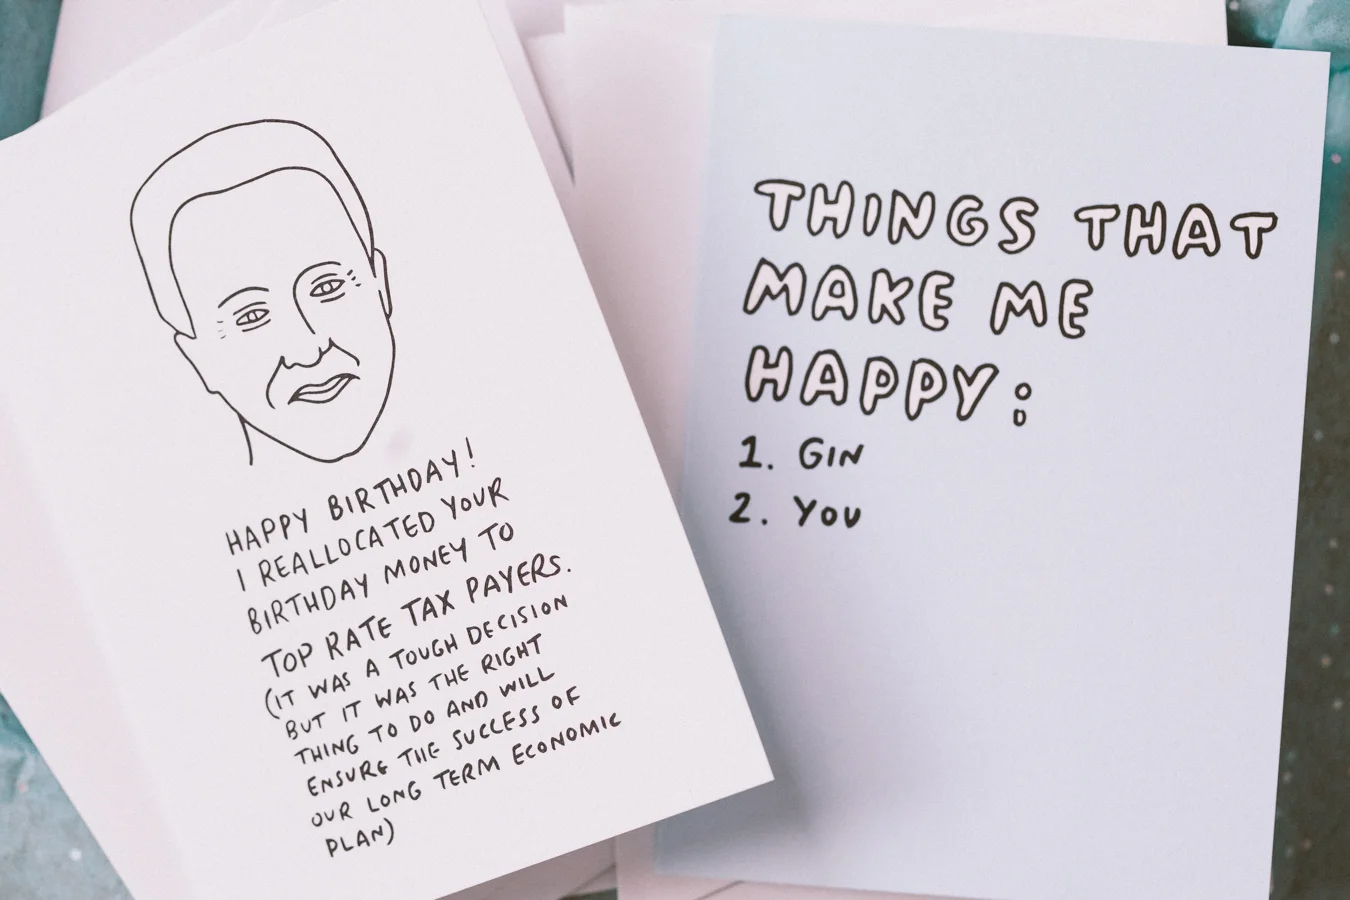 HAPPY BIRTHDAY!
I REALLOCATED YOUR
BIRTHDAY MONEY TO
TOP RATE TAX PAYERS.
(IT WAS A TOUGH DECISION
BUT IT WAS THE RIGHT
THING TO DO AND WILL
ENSURE THE SUCCESS OF
OUR LONG TERM ECONOMIC
PLAN)
THINGS THAT
MAKE ME
HAPPY:
1. GIN
2. YOU